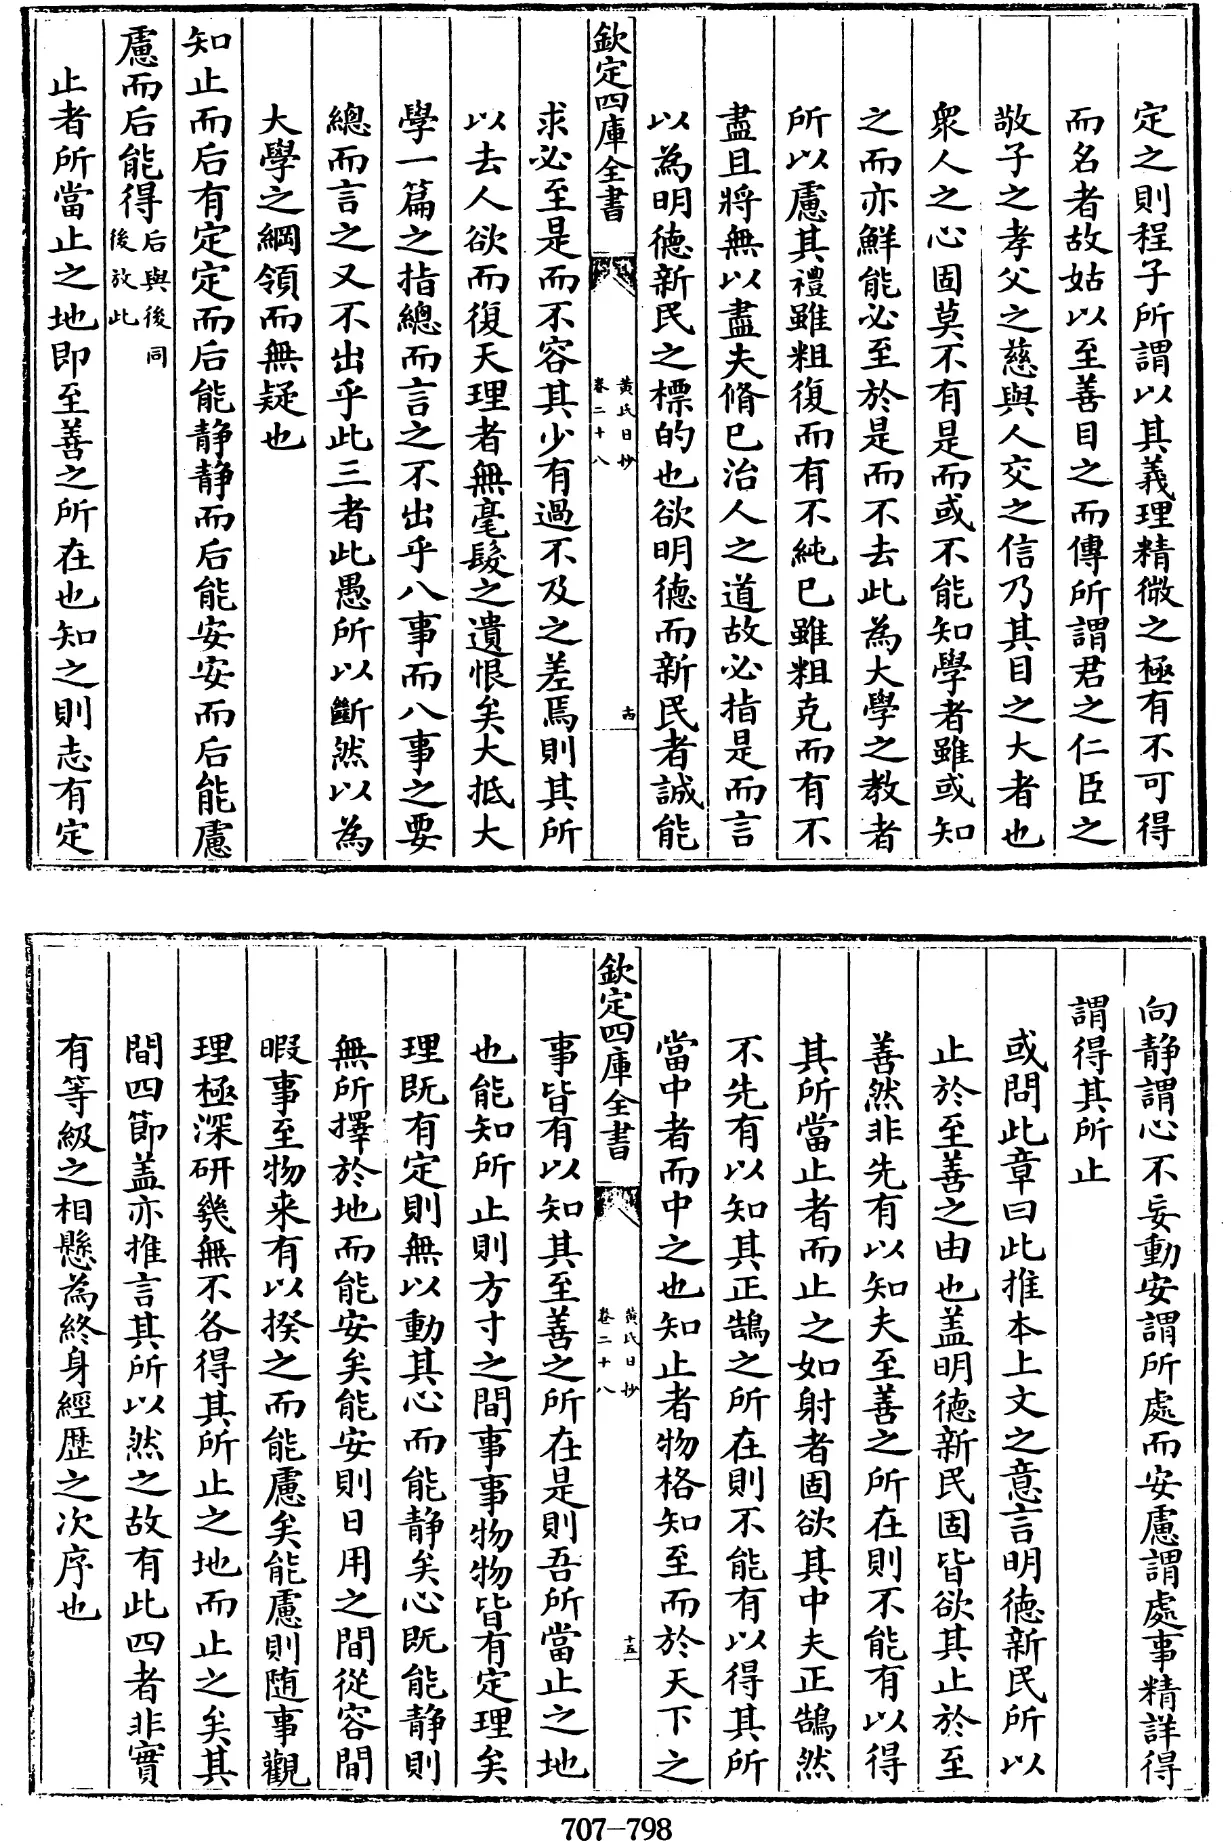 定之則程子所謂以其義理精微之極有不可得
而名者故姑以至善目之而傳所謂君之仁臣之
敬子之孝父之慈與人交之信乃其目之大者也
衆人之心固莫不有是而或不能知學者雖或知
之而亦鮮能必至於是而不去此為大學之教者
所以慮其禮雖粗復而有不純已雖粗克而有不
盡且將無以盡夫脩已治人之道故必指是而言
以為明德新民之標的也欲明德而新民者誠能
欽定四庫全書
黃氏日抄
卷二十八
十四
求必至是而不容其少有過不及之差焉則其所
以去人欲而復天理者無毫髮之遺恨矣大抵大
學一篇之指總而言之不出乎八事而八事之要
總而言之又不出乎此三者此愚所以斷然以為
大學之綱領而無疑也
知止而后有定定而后能静静而后能安安而后能慮
慮而后能得后與後同
後放此
止者所當止之地即至善之所在也知之則志有定
向静謂心不妄動安謂所處而安慮謂處事精詳得
謂得其所止
或問此章曰此推本上文之意言明德新民所以
止於至善之由也盖明德新民固皆欲其止於至
善然非先有以知夫至善之所在則不能有以得
其所當止者而止之如射者固欲其中夫正鵠然
不先有以知其正鵠之所在則不能有以得其所
當中者而中之也知止者物格知至而於天下之
欽定四庫全書
黃氏日抄
卷二十八
十五
事皆有以知其至善之所在是則吾所當止之地
也能知所止則方寸之間事事物物皆有定理矣
理既有定則無以動其心而能静矣心既能静則
無所擇於地而能安矣能安則日用之間從容間
暇事至物来有以揆之而能慮矣能慮則随事觀
理極深研幾無不各得其所止之地而止之矣其
間四節盖亦推言其所以然之故有此四者非實
有等級之相懸為終身經歴之次序也
707-798